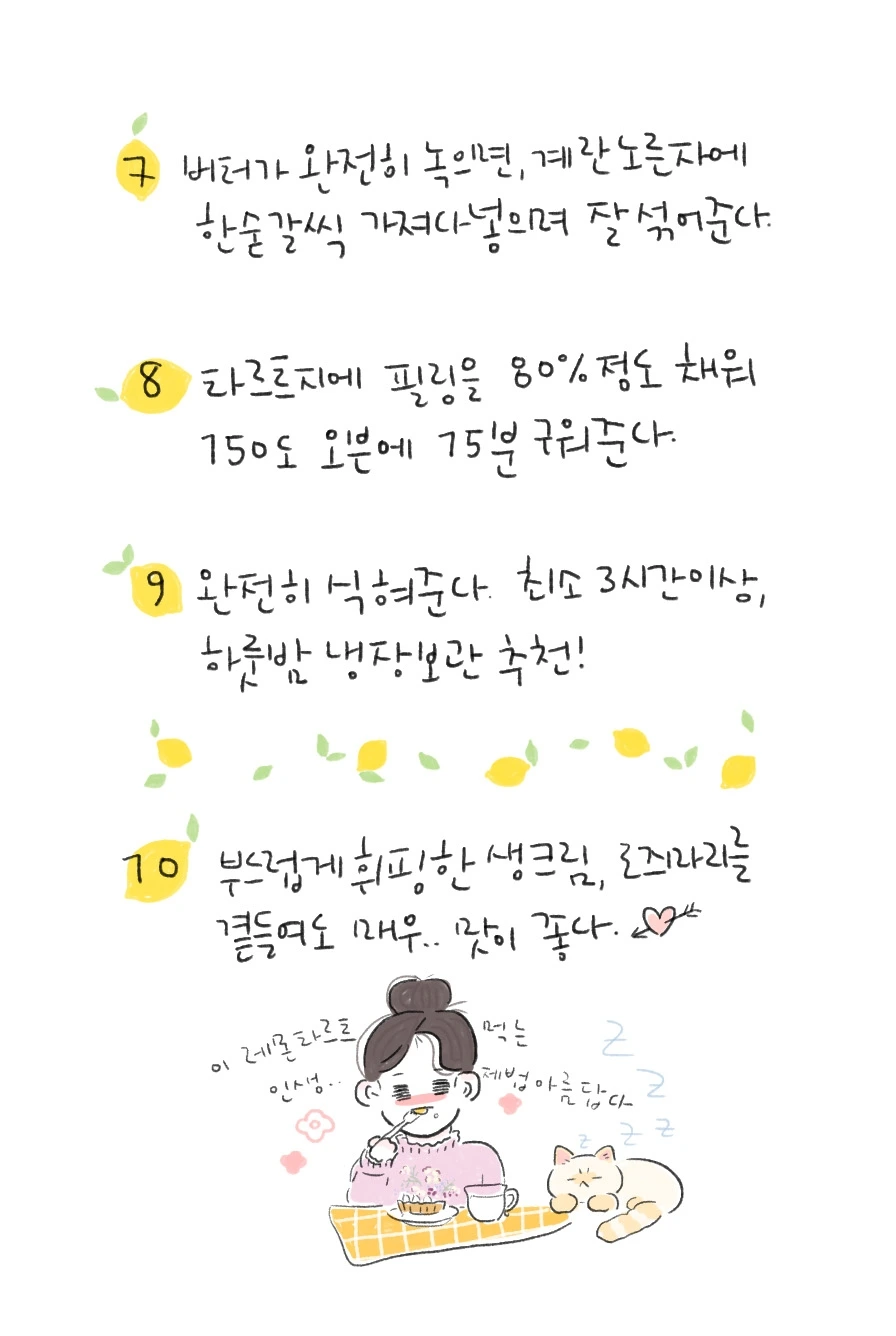 7 버터가 완전히 녹으면, 계란노른자에
한숟갈씩 가져다넣으며 잘 섞어준다.
8 타르트지에 필링을 80%정도 채워
150도 오븐에 15분 구워준다.
9 완전히 식혀준다. 최소 3시간이상,
하룻밤 냉장보관 추천!
10 부드럽게 휘핑한 생크림, 로즈마리를
곁들여도 매우.. 맛이 좋다.
이 레몬타르트 먹는
인생.. 제법 아름답다
Z
Z
z z z